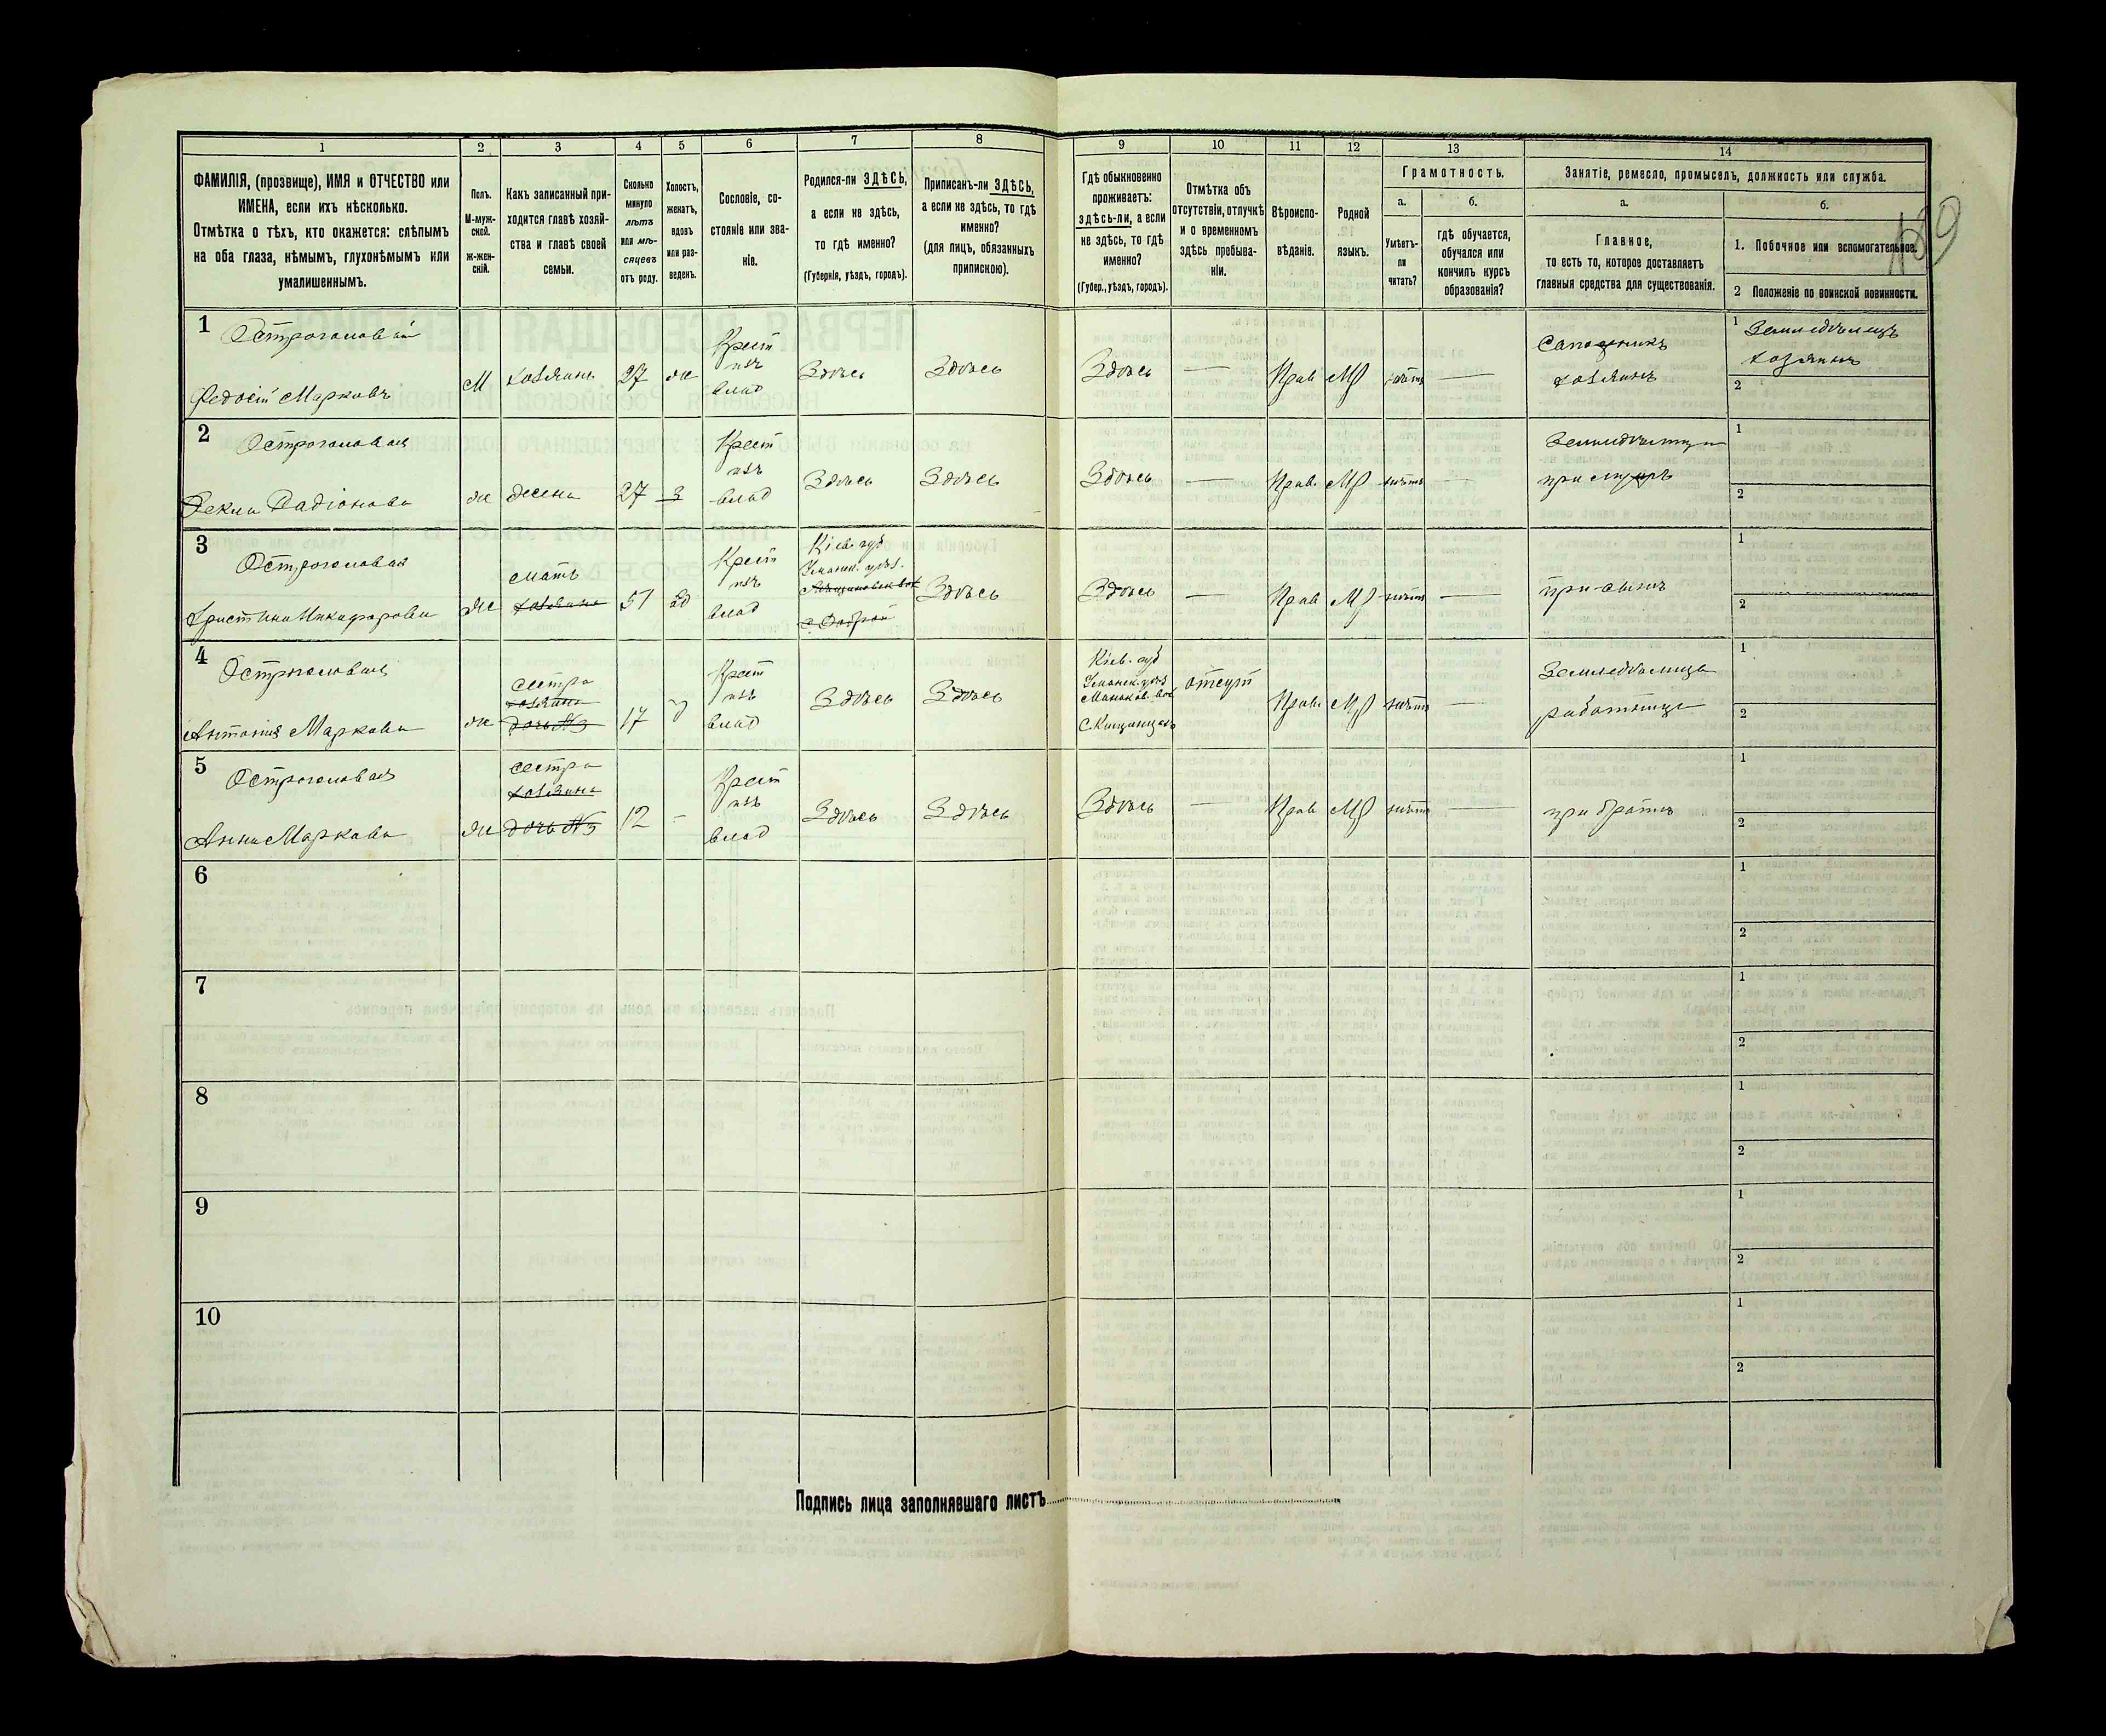 1 2 3 4 5 6 7 8 9 10 11 12 13 14
ФАМИЛІЯ, (прозвище), ИМЯ и ОТЧЕСТВО или
ИМЕНА, если ихъ нѣсколько.
Отмѣтка о тѣхъ, кто окажется: слѣпымъ
на оба глаза, нѣмымъ, глухонѣмымъ или
умалишеннымъ.
Полъ.
М-муж-
ской.
Ж-жен-
скій.
Какъ записанный при-
ходится главѣ хозяй-
ства и главѣ своей
семьи.
Сколько
минуло
лѣтъ
или мѣ-
сяцевъ
отъ роду.
Холостъ,
женатъ,
вдовъ
или раз-
веденъ.
Сословіе, со-
стояніе или зва-
ніе.
Родился-ли ЗДѢСЬ,
а если не здѣсь,
то гдѣ именно?
(Губернія, уѣздъ, городъ).
Приписанъ-ли ЗДѢСЬ,
а если не здѣсь, то гдѣ
именно?
(для лицъ, обязанныхъ
припискою).
Гдѣ обыкновенно
проживаетъ:
здѣсь-ли, а если
не здѣсь, то гдѣ
именно?
(Губер., уѣздъ, городъ).
Отмѣтка объ
отсутствіи, отлучкѣ
и о временномъ
здѣсь пребыва-
ніи.
Вѣроиспо-
вѣданіе.
Родной
языкъ.
Грамотность.
а.
Умѣетъ-
ли
читать?
б.
гдѣ обучается,
обучался или
кончилъ курсъ
образованія?
Занятіе, ремесло, промыселъ, должность или служба.
а.
Главное,
то есть то, которое доставляетъ
главныя средства для существованія.
б.
1. Побочное или вспомогательное.
2 Положеніе по воинской повинности.
189
1
Остроголовый
Федосій Марковъ
М
хозяинъ
27
ж
Крест
изъ
влад
Здѣсь
Здѣсь
Здѣсь
—
Прав
МР
нѣтъ
—
Сапожникъ
хозяинъ
1 Земледѣлецъ
хозяинъ
2
2
Остроголовая
Текля Радіонова
ж
жена
27
з
Крест
изъ
влад
Здѣсь
Здѣсь
Здѣсь
—
Прав
МР
нѣтъ
—
при мужѣ
1
2
3
Остроголовая
Христина Никифорова
ж
мать
хозяина
51
вд
Крест
изъ
влад
Кіев. губ
Уманск. уѣз.
Здѣсь
Здѣсь
—
Прав
МР
нѣтъ
—
при сынѣ
1
2
4
Остроголовая
Антонія Маркова
ж
сестра
хозяина
дочь №3
17
д
Крест
изъ
влад
Здѣсь
Здѣсь
Кіев. губ
Уманск. уѣз
Маньков. вол
отсут
Прав
МР
нѣтъ
—
Земледѣлица
работница
1
2
5
Остроголовая
Анна Маркова
ж
сестра
хозяина
дочь №3
12
-
Крест
изъ
влад
Здѣсь
Здѣсь
Здѣсь
—
Прав
МР
нѣтъ
—
при братѣ
1
2
6
1
2
7
1
2
8
1
2
9
1
2
10
1
2
Подпись лица заполнявшаго листъ